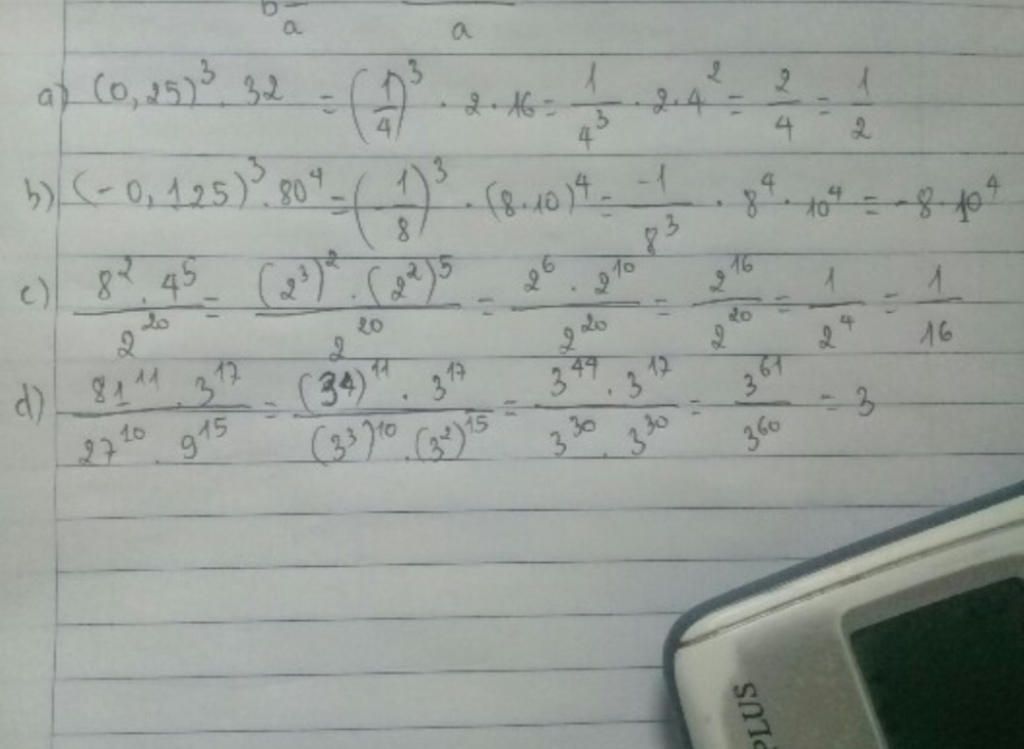 b/a a
a) (0,25)³ . 32 = (1/4)³ . 2 . 16 = 1/4³ . 2 . 4² = 2/4 = 1/2
b) (-0,125)³ . 80⁴ = (-1/8)³ . (8.10)⁴ = -1/8³ . 8⁴ . 10⁴ = -8 . 10⁴
c) 8² . 4⁵/2²⁰ = (2³)² . (2²)⁵/2²⁰ = 2⁶ . 2¹⁰/2²⁰ = 2¹⁶/2²⁰ = 1/2⁴ = 1/16
d) 81¹¹ . 3¹⁷/27¹⁰ . 9¹⁵ = (34)¹¹ . 3¹⁷/(3³)¹⁰ . (3²)¹⁵ = 3⁴⁴ . 3¹⁷/3³⁰ . 3³⁰ = 3⁶¹/3⁶⁰ = 3
PLUS